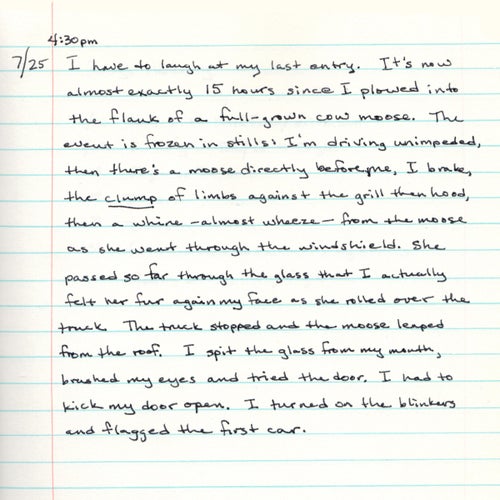 4:30pm
7/25 I have to laugh at my last entry. It's now
almost exactly 15 hours since I plowed into
the flank of a full-grown cow moose. The
event is frozen in stills: I'm driving unimpeded,
then there's a moose directly before me, I brake,
the clump of limbs against the grill then hood,
then a whine -almost wheeze- from the moose
as she went through the windshield. She
passed so far through the glass that I actually
felt her fur again my face as she rolled over the
truck. The truck stopped and the moose leaped
from the roof. I spit the glass from my mouth,
brushed my eyes and tried the door. I had to
kick my door open. I turned on the blinkers
and flagged the first car.